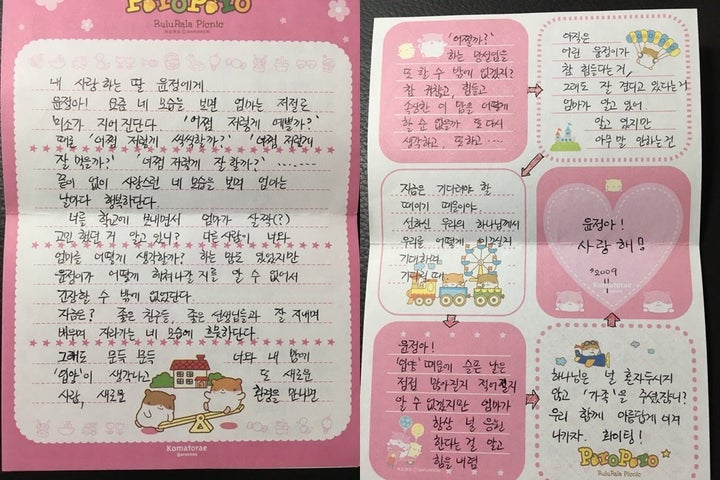 PoroPoro
RuluRala Picnic
내 사랑하는 딸 윤정에게
윤정아! 요즘 네 모습을 보면 엄마는 저절로
미소가 지어진단다. '어쩜 저렇게 예쁠까?'
때론 '어쩜 저렇게 씩씩할까?' '어쩜 저렇게
잘 먹을까?' '어쩜 저렇게 잘 할까?' ......
끝이 없이 사랑스런 네 모습을 보며 엄마는
날마다 행복하단다.
너를 학교에 보내면서 엄마가 살짝(?)
고민했던 거 알고 있니? 다른 사람이 너와
엄마를 어떻게 생각할까? 하는 맘도 있었지만
윤정이가 어떻게 헤쳐나갈 지를 알 수 없어서
긴장할 수 밖에 없었단다.
지금은? 좋은 친구들, 좋은 선생님들과 잘 지내며
배우며 자라가는 네 모습에 흐뭇하단다.
그래도 문득 문득 너와 내 맘에
'입양'이 생각나고 또 새로운
사람, 새로운 환경을 만나면
Komatorae
'어쩔까?'
하는 망설임을
또 할 수 밖에 없겠지?
참 귀찮고, 힘들고
속상한 이 맘을 어떻게
할 순 없을까 또 다시
생각하고, 또하고....
아직은
어린 윤정이가
참 힘들다는거,
그래도 잘 견디고 있다는거
엄마가 알고 있어.
알고 있지만
아무 말 안하는건
지금은 기다려야 할
때이기 때문이야.
신실하신 우리의 하나님께서
우리를 어떻게 이끄실지
기대하며,
기다릴 때
윤정아!
'입양' 때문에 슬픈 날은
점점 많아질지 적어질지
알 수 없겠지만 엄마가
항상 널 응원
한다는 걸 알고
힘을 내렴
하나님은 널 혼자두시지
않고 '가족'을 주셨잖니?
우리 함께 아름답게 이겨
나가자. 화이팅!
PoroPoro
RuluRala Picnic
윤정아!
사랑해!!
2009
Komatorae